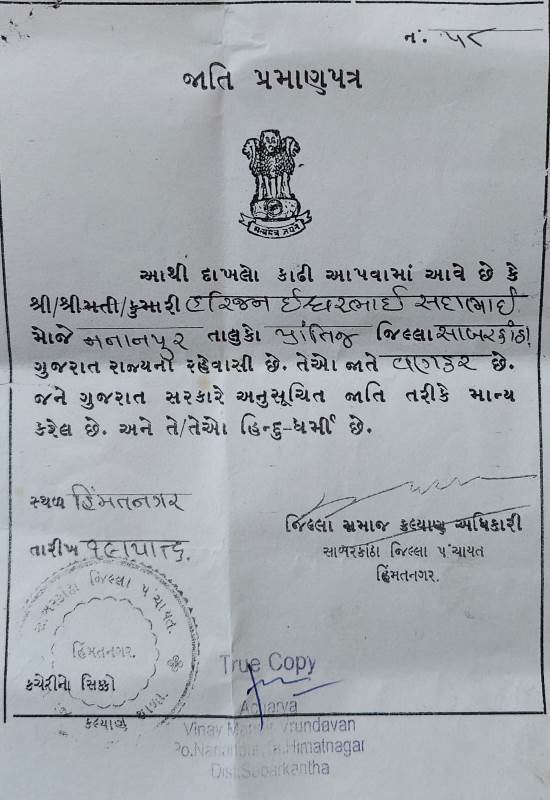 નં. ૫૮
જાતિ પ્રમાણપત્ર
सत्यमेव जयते
આથી દાખલો કાઢી આપવામાં આવે છે કે
શ્રી/શ્રીમતી/કુમારી હરિજન ઈશ્વરભાઈ સદાભાઈ
મોજે મનાનપુર તાલુકો પ્રાંતિજ જિલ્લા સાબરકાંઠા
ગુજરાત રાજ્યના રહેવાસી છે. તેઓ જાતે વણકર છે.
જેને ગુજરાત સરકારે અનુસૂચિત જાતિ તરીકે માન્ય
કરેલ છે. અને તે/તેઓ હિન્દુ-ધર્મી છે.
સ્થળ હિંમતનગર
તારીખ
જિલ્લા સમાજ કલ્યાણ અધિકારી
સાબરકાંઠા જિલ્લા પંચાયત
હિંમતનગર.
સાબરકાંઠા જિલ્લા પંચાયત.
હિંમતનગર.
કચેરીનો સિક્કો
કલ્યાણ
True Copy
Acharya
Vinay Mandir Vrundavan
Himatnagar
Dist. Sabarkantha